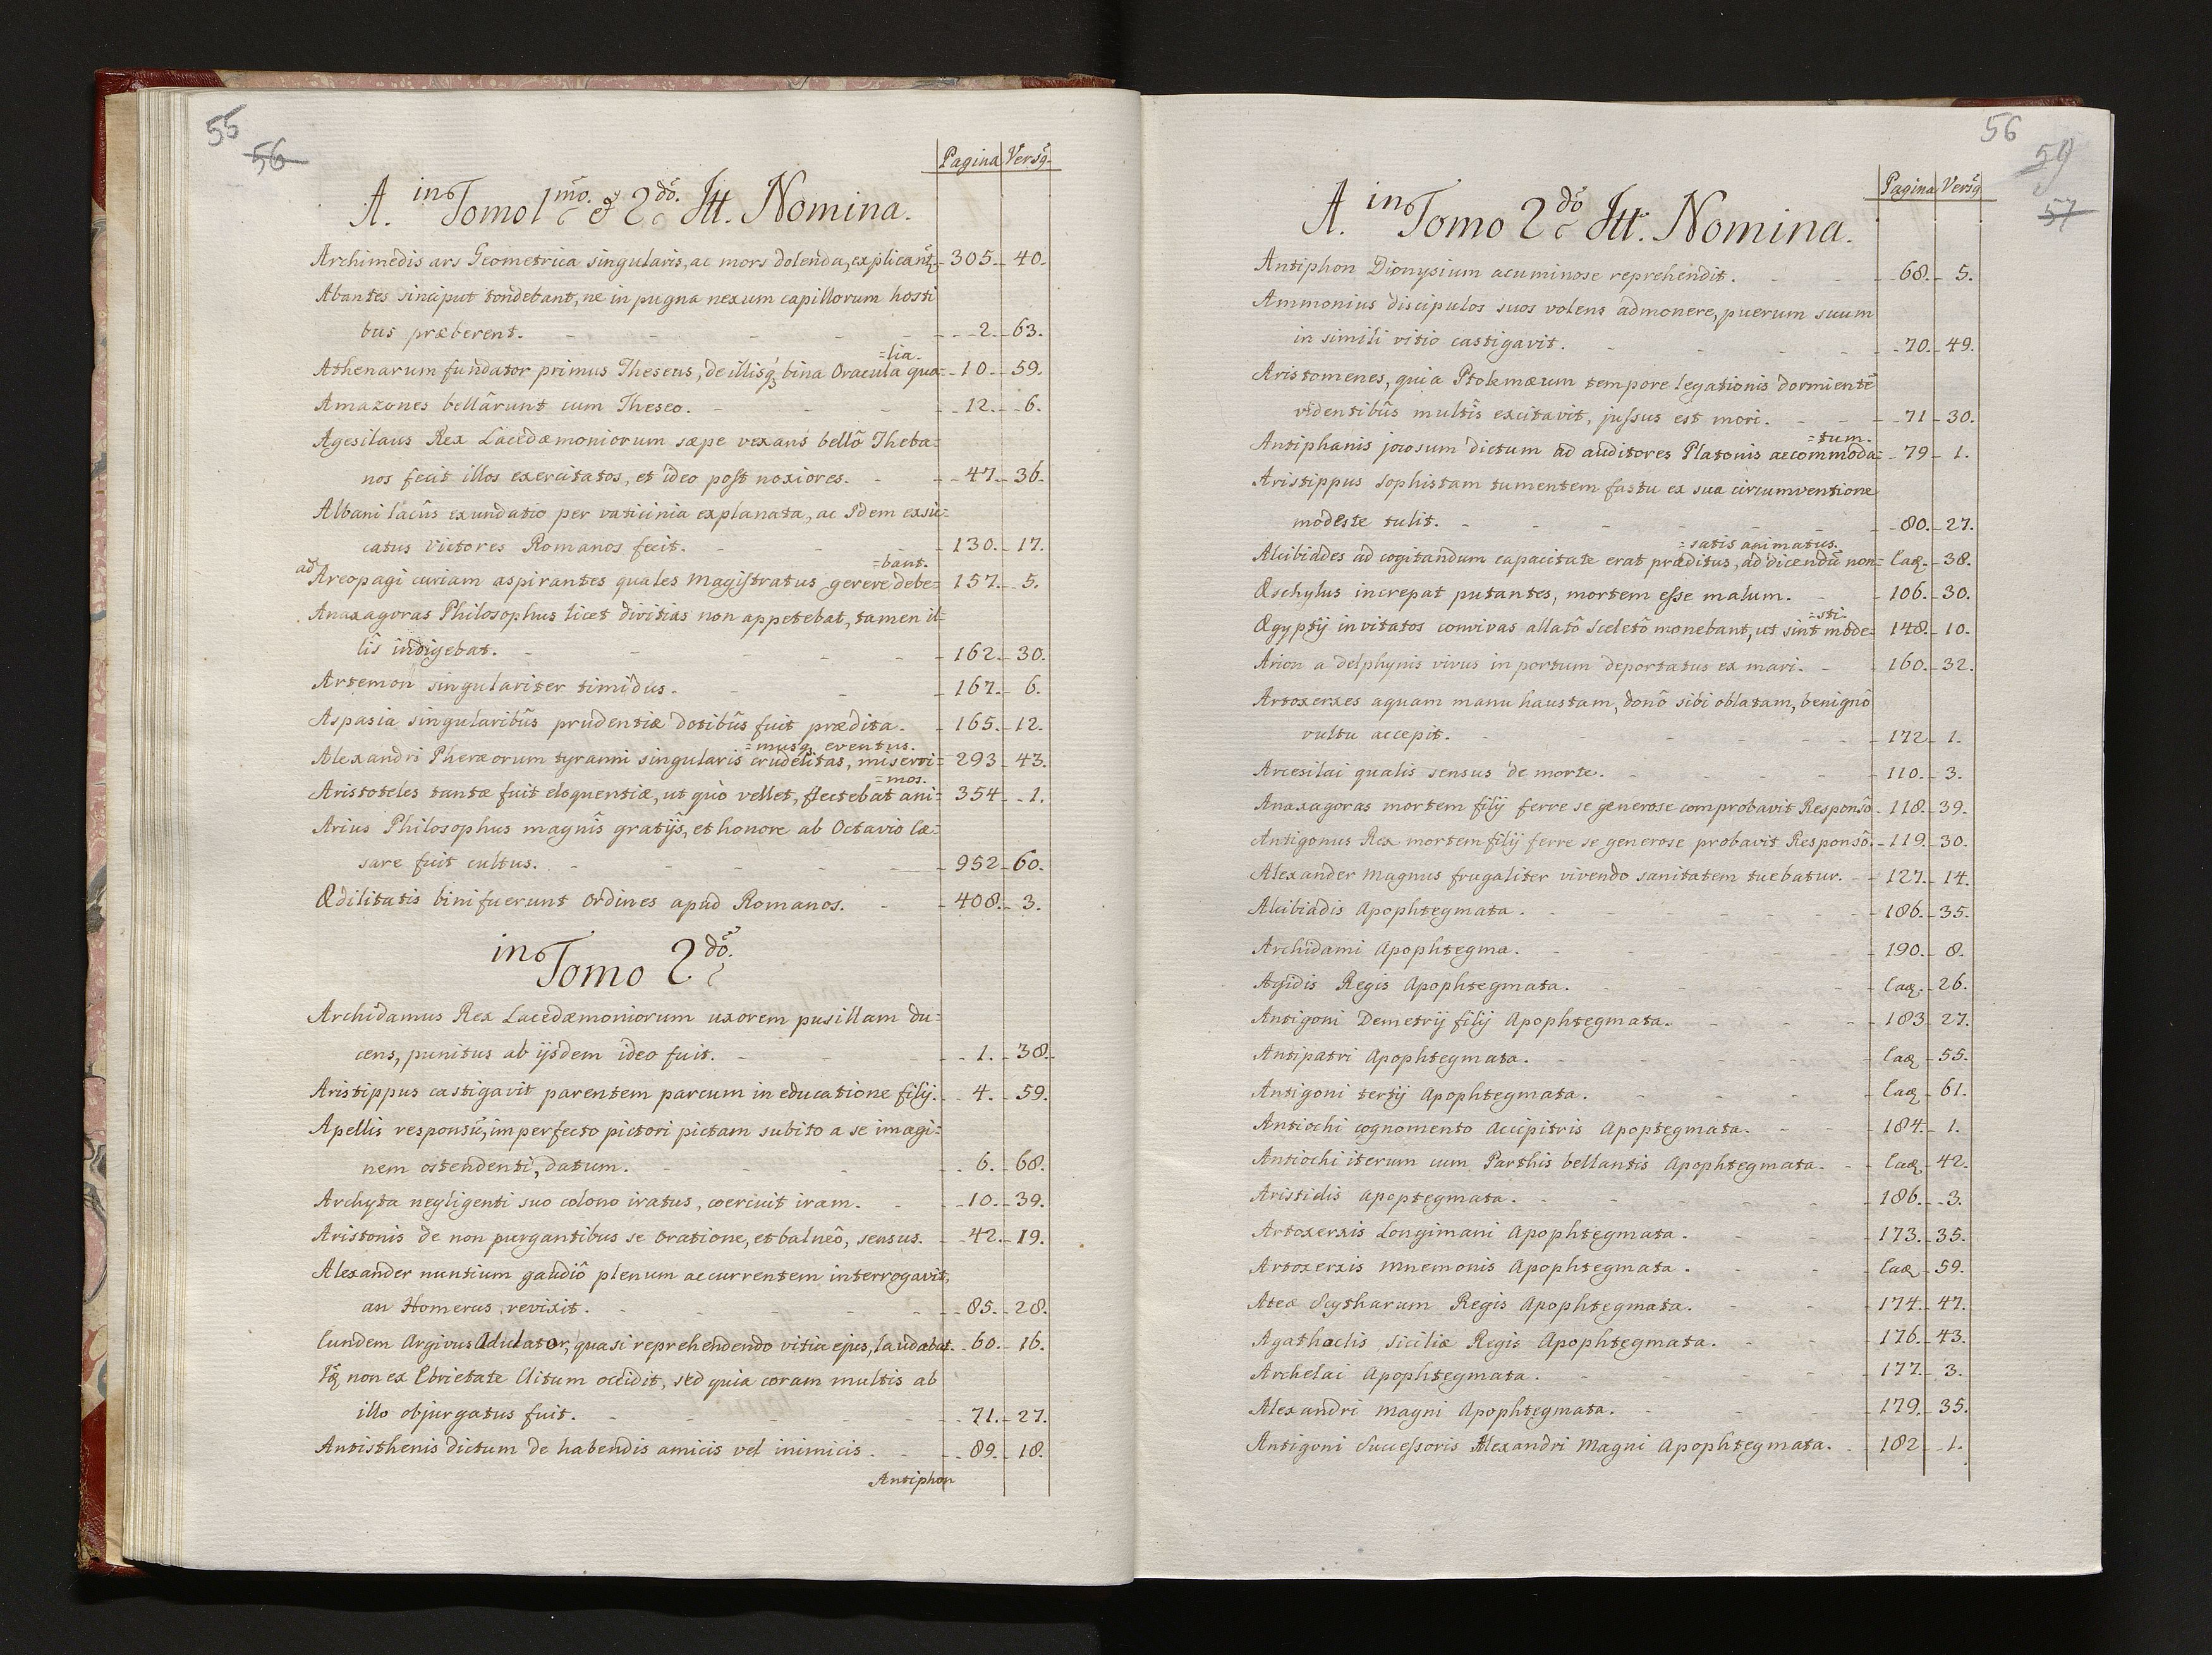 55
56
Pagina Versq̃
A. in Tomo 1mo. & 2do. Itt. Nomina.
Archimedis ars Geometrica singularis, ac mors dolenda, explicant̃ 305. 40.
Abantes sinciput tondebant, ne in pugna nexum capillorum hosti
bus præberent. 2. 63.
=lia.
Athenarum fundator primus Theseus, de illisq́ bina Oracula qua= 10. 59.
Amazones bellârunt cum Theseo. 12. 6.
Agesilaus Rex Lacedæmoniorum sæpe vexans bellô Theba=
nos fecit illos exercitatos, et ideo post noxiores. 47. 36.
Albani lacûs exundatio per vaticinia explanata, ac Idem exsic=
catus Victores Romanos fecit. 130. 17.
=bant.
ad Areopagi curiam aspirantes quales Magistratus gerere debe= 157. 5.
Anaxagoras Philosophus licet divitias non appetebat, tamen il=
lis indigebat. 162. 30.
Artemon singulariter timidus. 167. 6.
Aspasia singularibûs prudentiæ dotibûs fuit prædita. 165. 12.
=musq̃ eventus.
Alexandri Pheræorum tyranni singularis crudelitas, miserri= 293 43.
=mos.
Aristoteles tantæ fuit eloquentiæ, ut quò vellet, flectebat ani= 354 1.
Arius Philosophus magnîs gratijs, et honore ab Octavio Cæ=
sare fuit cultus. 952 60.
Ædilitatis bini fuerunt Ordines apud Romanos. 408. 3.
in Tomo 2do.
Archidamus Rex Lacedæmoniorum uxorem pusillam du=
cens, punitus ab ijsdem ideo fuit. 1. 38.
Aristippus castigavit parentem parcum in educatione filij. 4. 59.
Apellis responsũ, imperfecto pictori pictam subito a se imagi=
nem ostendenti, datum. 6. 68.
Archyta negligenti suo colono iratus, coercuit iram. 10. 39.
Aristonis de non purgantibus se Oratione, et balneô, sensus. 42. 19.
Alexander nuntium gaudiô plenum accurrentem interrogavit,
an Homerus revixit. 85. 28.
Eundem Argivus Adulator, quasi reprehendendo vitia ejus, laudabat. 60. 16.
Iq̃ non ex Ebrietate Clitum occidit, sed quia coram multis ab
illo objurgatus fuit. 71. 27.
Antisthenis dictum de habendis amicis vel inimicis. 89. 18.
Antiphon
56
59
57
Pagina Versq̃
A. in Tomo 2do Itt. Nomina.
Antiphon Dionysium acuminose reprehendit. 68. 5.
Ammonius discipulos suos volens admonere, puerum suum
in simili vitio castigavit. 70. 49.
Aristomenes, quia Ptolemæum tempore legationis dormientẽ
videntibûs multîs excitavit, jussus est mori. 71 30.
=tum.
Antiphanis jocosum dictum ad auditores Platonis accommoda= 79 1.
Aristippus Sophistam tumentem fastu ex sua circumventione
modeste tulit. 80. 27.
=satis animatus.
Alcibiades ad cogitandum capacitate erat præditus, ad dicendũ non= Eaq̃. 38.
Æschylus increpat putantes, mortem esse malum. 106. 30.
=sti.
Ægyptij invitatos convivas allatô Sceletô monebant, ut sint mode= 148. 10.
Arion a delphynis vivus in portum deportatus ex mari. 160. 32.
Artoxerxes aquam manu haustam, donô sibi oblatam, benignô
vultu accepit. 172 1.
Arcesilai qualis sensus de morte. 110. 3.
Anaxagoras mortem filij ferre se generose comprobavit Responsô 118. 39.
Antigonus Rex mortem filij ferre se generose probavit Responsô. 119. 30.
Alexander Magnus frugaliter vivendo sanitatem tuebatur. 127. 14.
Alcibiadis Apophtegmata. 186. 35.
Archidami Apophtegma. 190. 8.
Agidis Regis Apophtegmata. Eaq̃. 26.
Antigoni Demetrij filij Apophtegmata. 183 27.
Antipatri Apophtegmata. Eaq̃ 55.
Antigoni tertij Apophtegmata. Eaq̃ 61.
Antiochi cognomento Accipitris Apoptegmata. 184. 1.
Antiochi iterum cum Parthis bellantis Apophtegmata. Eaq̃ 42.
Aristidis Apoptegmata. 186. 3.
Artoxerxis Longimani Apophtegmata. 173. 35.
Artoxerxis Mnemonis Apophtegmata. Eaq̃ 59.
Ateæ Scytharum Regis Apophtegmata. 174. 47.
Agathoclis Siciliæ Regis Apophtegmata. 176. 43.
Archelai Apophtegmata. 177. 3.
Alexandri Magni Apophtegmata. 179. 35.
Antigoni Successoris Alexandri Magni Apophtegmata. 182 1.